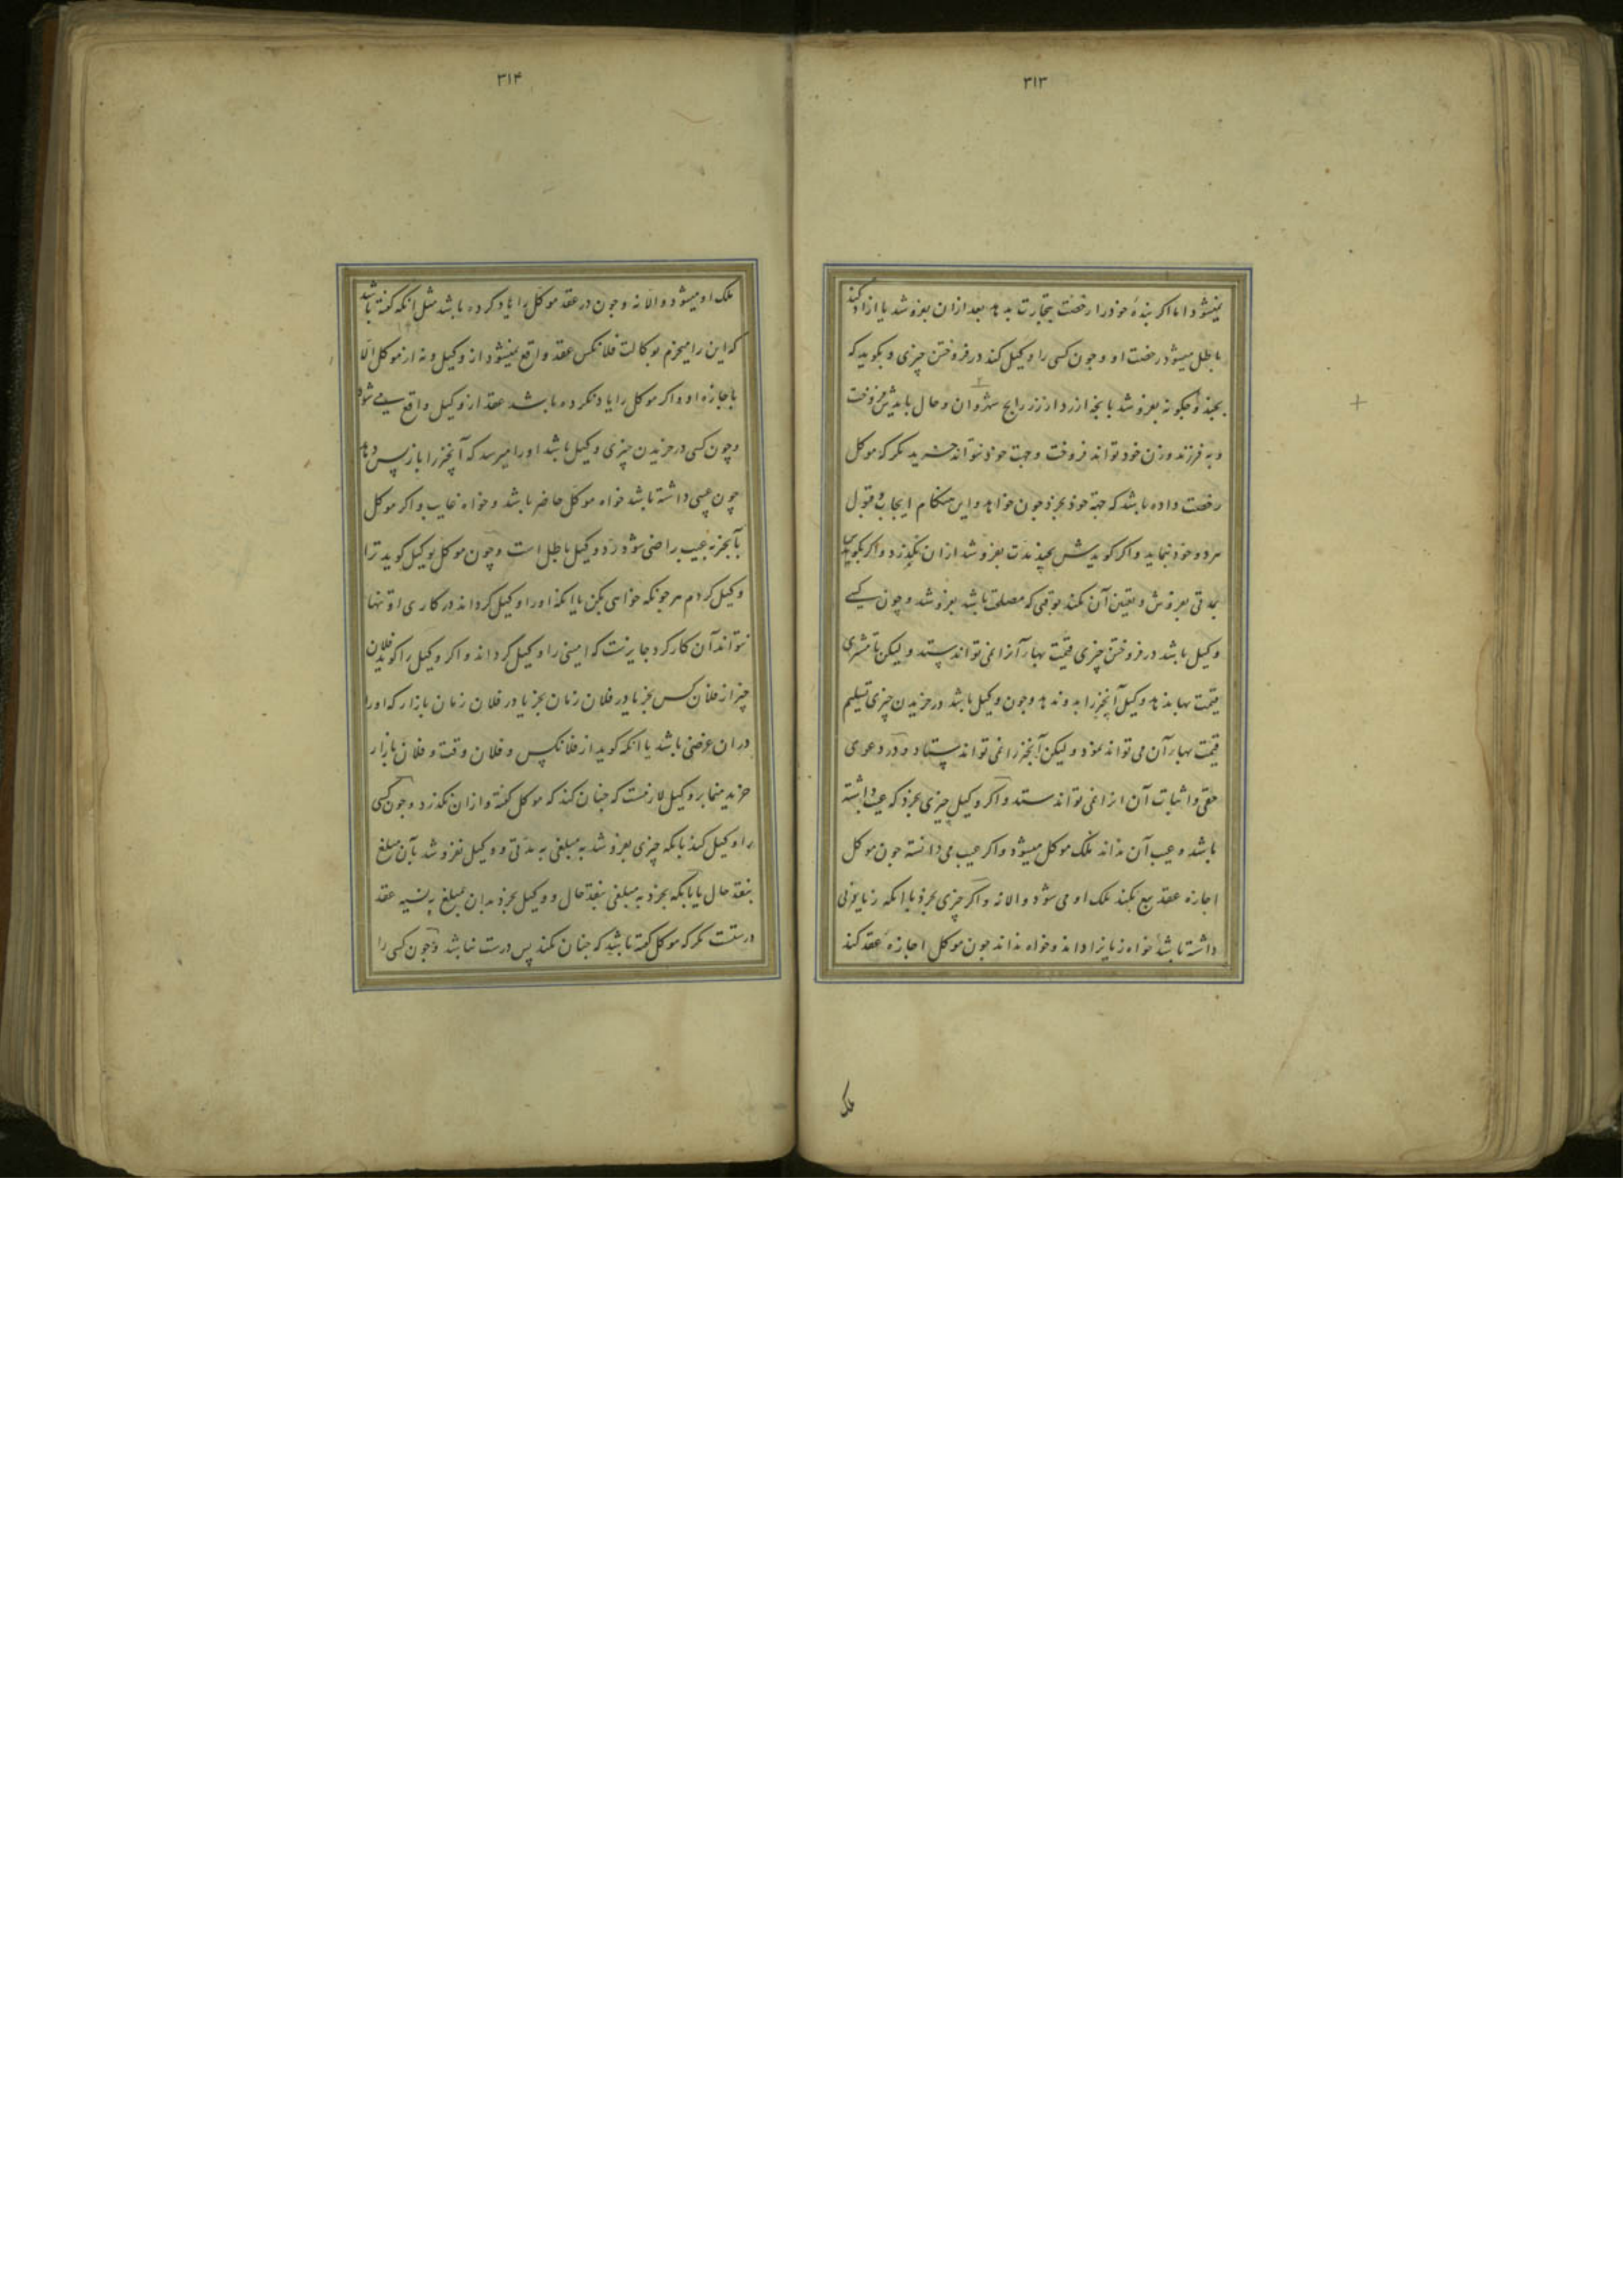 ۳۱۳
نمیشود اما اکر بندهٔ خود را رخصت تجارت بدهد بعد ازان بفروشد یا ازاد کند
باطل میشود رخصت او و چون کسی را وکیل کند در فروختن چیزی و بکوید که
بچند و چکونه بفروشد بانچه ارزد از زر رایج شهر وان و حال بایدش فروخت
و به فرزند و زن خود تواند فروخت و جهت خود نتواند خرید مکر که موکل
رخصت داده باشد که جهة خود بخرد چون خواهد و این هنکام ایجاب و قبول
هر دو خود نماید و اکر کویدش بچند مدت بفروشد ازان نکذرد و اکر بکوید
بمدتی بفروش و تعین آن نکند بوقتی که مصلحت باشد بفروشد و چون کسی
وکیل باشد در فروختن چیزی قیمت بهاء آنرا نمی تواند ستد و لیکن تا مشتری
قیمت بها ندهد وکیل آنچیز را بدو ندهد و چون وکیل باشد در خریدن چیزی تسلیم
قیمت بهاء آن می تواند نمود و لیکن آنچیز را نمی تواند ستاد و در دعوی
حقی و اثبات آن انرا نمی تواند ستد و اکر وکیل چیزی بخرد که عیب داشته
باشد و عیب آن نداند ملک موکل میشود و اکر عیب می دانسته چون موکل
اجازه عقد بیع نکند ملک او می شود و الا نه و اکر چیزی بخرد با انکه زیانی
داشته باشد خواه زیانرا داند و خواه نداند چون موکل اجازهٔ عقد کند
ملک
۳۱۴
ملک او میشود و الا نه و چون در عقد موکل را یاد کرده باشد مثل انکه کفته باشد
که این را میخرم بوکالت فلانکس عقد واقع نمیشود از وکیل و نه از موکل الا
باجازه او و اکر موکل را یاد نکرده باشد عقد از وکیل واقع می شود
و چون کسی در خریدن چیزی وکیل باشد او را میرسد که آنچیز را باز پس دهد
چون عیبی داشته باشد خواه موکل حاضر باشد و خواه غایب و اکر موکل
بآنچیز به عیب راضی شود رد وکیل باطل است و چون موکل بوکیل کوید ترا
وکیل کردم هر چونکه خواهی بکن یا انکه او را وکیل کرداند در کاری او تنها
نتواند آن کار کرد جایزست که امینی را وکیل کرداند و اکر وکیل را کوید فلان
چیز از فلان کس بخر یا در فلان زمان بخر یا در فلان زمان بازار که او را
دران غرضی باشد یا انکه کوید از فلانکس و فلان وقت و فلان بازار
خرید منما بر وکیل لازمست که چنان کند که موکل کفته و ازان نکذرد و چون کسی
را وکیل کند بانکه چیزی بفروشد به مبلغی به مدتی و وکیل بفروشد بآن مبلغ
بنقد حال یا بانکه بخرد به مبلغی بنقد حال و وکیل بخرد بدان مبلغ به نسیه عقد
درستست مکر که موکل کفته باشد که چنان نکند پس درست نباشد و چون کسی را